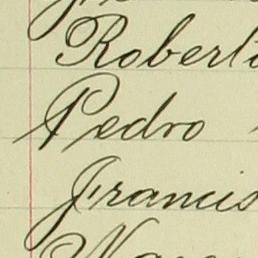 Robert
Pedro
Francis